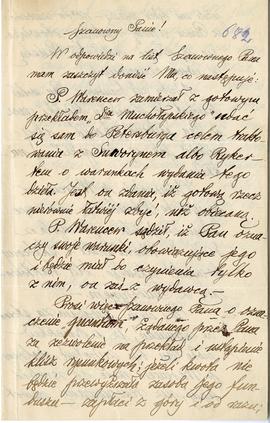 Szanowny Panie!
682
W odpowiedzi na list Szanownego Pana
mam zaszczyt donieść Mu, co następuje:
P. Warencer zamierzał z gotowym
przekładem, Dra Muchołapskiego udać
się sam do Petersburga celem traktowania
z Suworynem albo Ryker-
em o warunkach wydania tego
dzieła. Jest on zdania, iż gotową rzecz
niesłownie łatwiej zbyć, niż obiecaną.
P. Warencer sądził, iż Pan ozna-
czy swoje warunki, obowiązujące jego
i będzie miał do czynienia tylko
z nim, on zaś z wydawcą. —
Prosi więc szanownego Pana o ozna-
czenie żądanego przez Pana
za zezwolenie na przekład i ustąpienie
klisz rysunkowych; jeżeli kwota nie
będzie przewyższała zasobu jego fun-
duszu — zapłaci z góry i od razu;